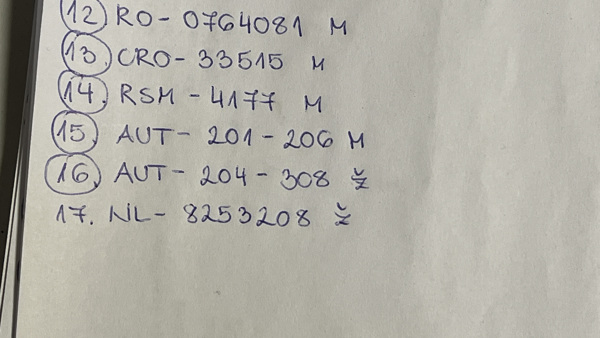 12 RO - 0764081 M
13. CRO - 33515 M
14. RSM - 4177 M
15. AUT - 201 - 206 M
16. AUT - 204 - 308 Ž
17. NL - 8253208 Ž